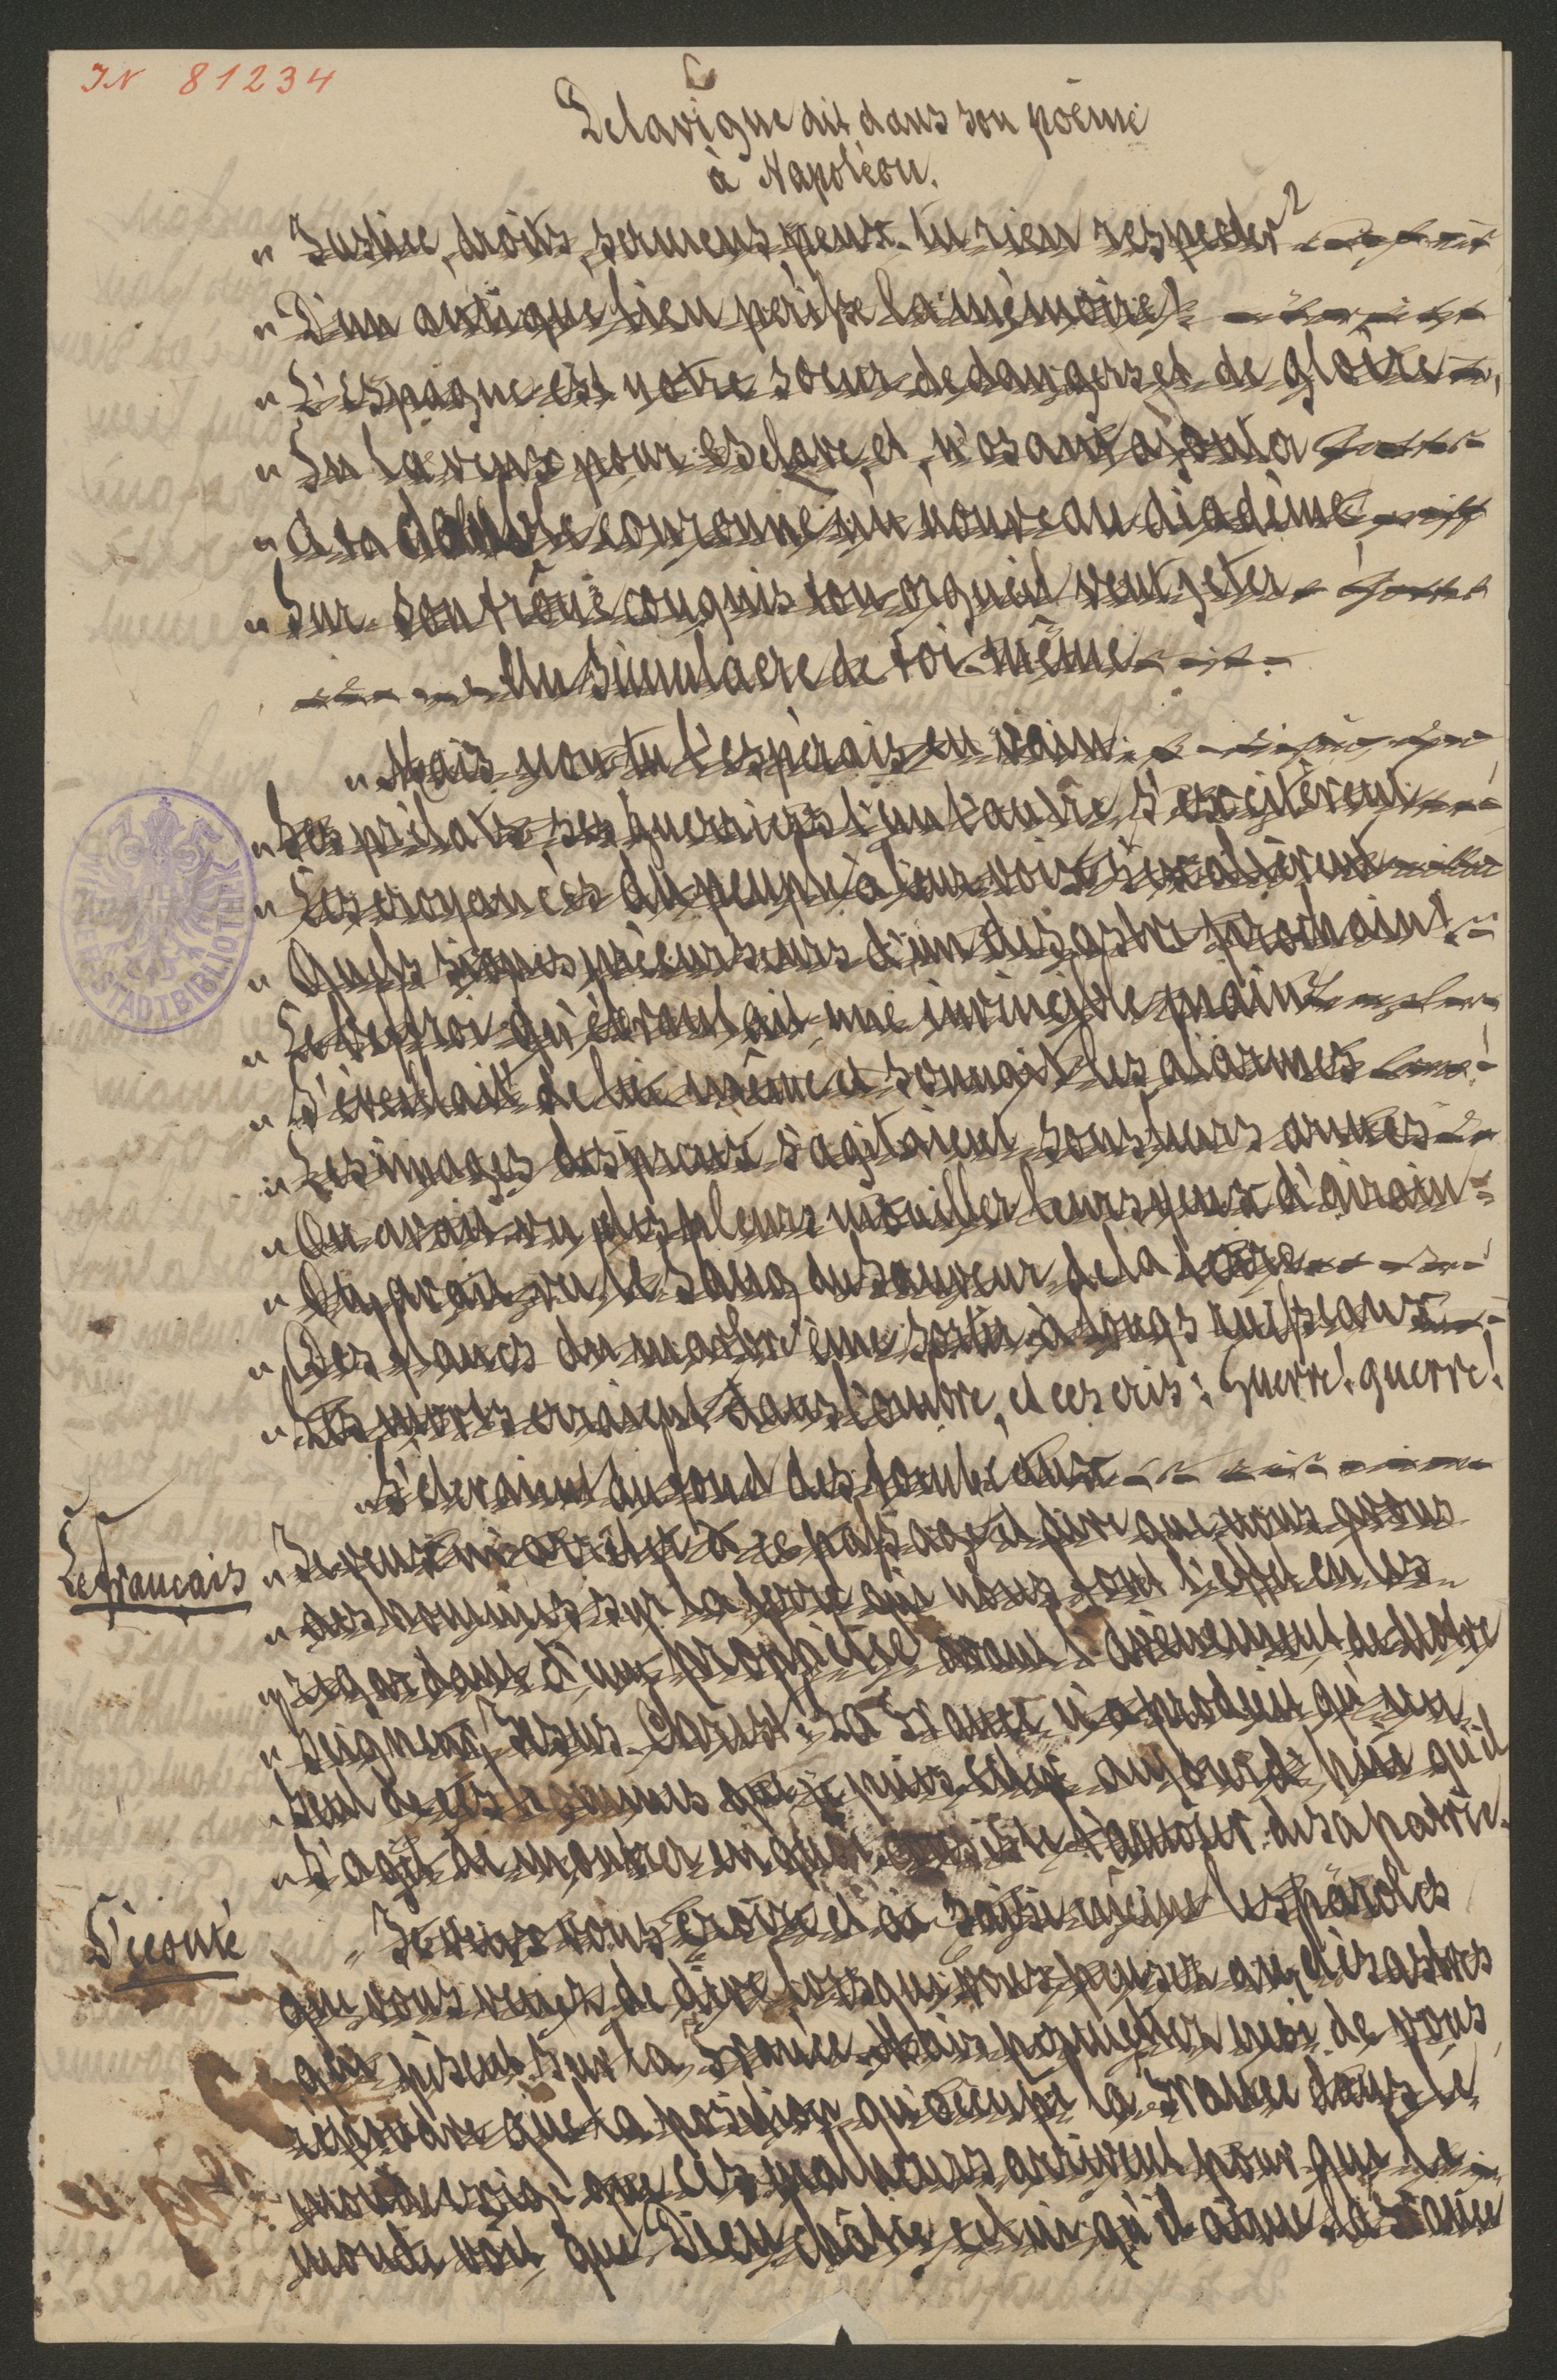 IN 81234
Delavigne dit dans son poème
à Napoléon.
" Justice, droits, sermens peux-tu rien respecter?
" D'un antique lien périsse la mémoire!
" L'Espagne est notre soeur de dangers et de gloire
" Tu la veux pour esclave, et, n'osant ajouter
" A ta double couronne un nouveau diadème
" Sur son trône conquis ton orgueil veut jeter
Un simulacre de toi-même
" Mais non tu l'espérais en vain.
" Ses prélats ses guerriers l'un l'autre s'excitèrent
" Les croyances du peuple à leur voix s'exaltèrent
" Quels signes précurseurs d'un désastre prochain!
" Le beffroi qu'ébranlait une invincible main
" S'éveillait de lui-même et sonnait les alarmes
" Les images des preux s'agitaient sous leurs armes
" On avait vu des pleurs mouiller leurs yeux d'airain
" On avait vu le sang du Sauveur de la terre
" Des flancs du marbre ému sortir à longs ruisseaux
" Les morts erraient dans l'ombre, et ces cris: Guerre! guerre!
" S'élevaient du fond des tombeaux
Le français
" Je veux m'arrêter à ce passage et dire que nous avons
" des hommes sur la terre qui nous font l'effet en les
" regardant d'une prophétie avant l'avènement de Notre
" Seigneur Jesus Christ. La France n'a produit qu'un
" seul de ces hommes que je puis citer aujourd'hui qu'il
" s'agit de montrer en quoi consiste l'amour de sa patrie.
S'écoute
" Je veux vous croire et ai saisi même les paroles
que vous venez de dire lorsque vous pensez aux désastres
qui pèsent sur la France. Mais permettez moi de vous
répondre que la position qu'occupe la France dans le
monde exige que ces malheurs arrivent pour que le
monde voit que Dieu châtie celui qu'il aime. La France
WIENER STADTBIBLIOTHEK